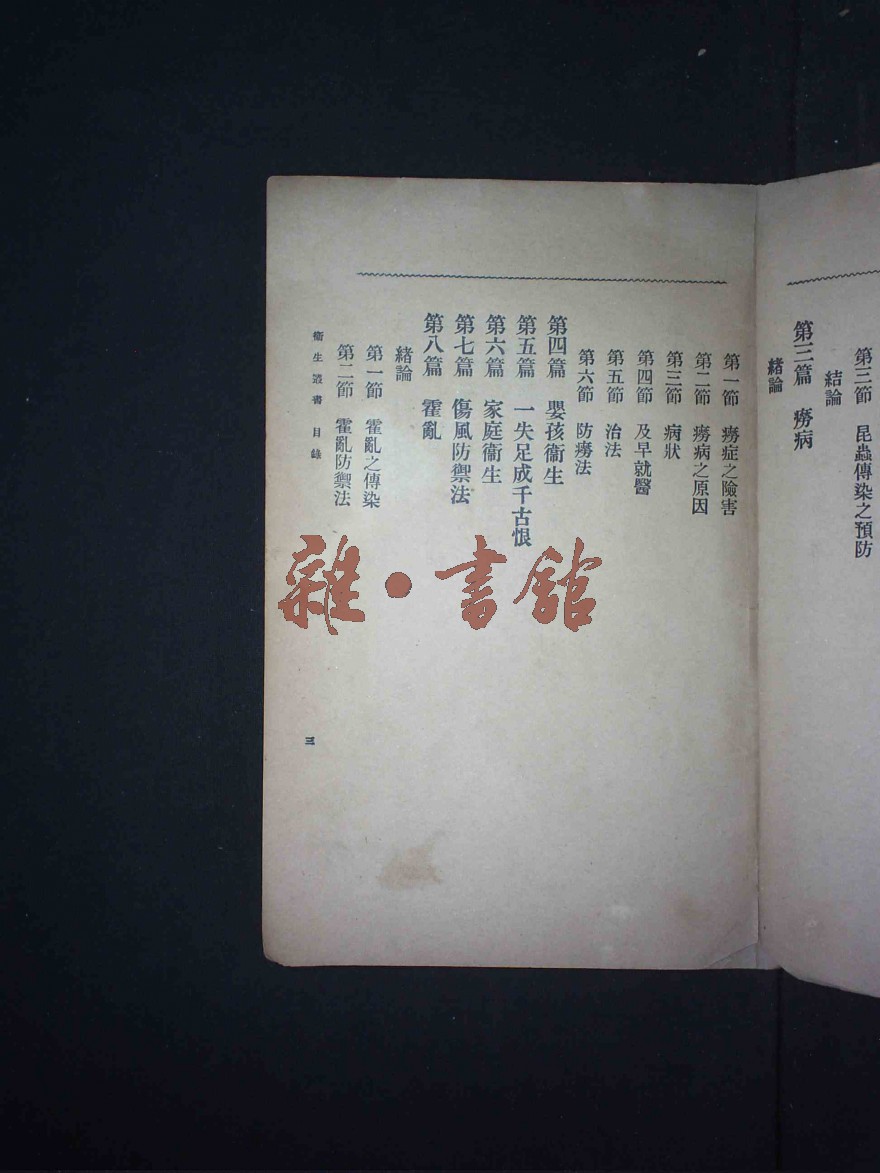 第三節　昆蟲傳染之預防
結論
第三篇　癆病
緒論
第一節　癆症之險害
第二節　癆病之原因
第三節　病狀
第四節　及早就醫
第五節　治法
第六節　防癆法
第四篇　嬰孩衞生
第五篇　一失足成千古恨
第六篇　家庭衞生
第七篇　傷風防禦法
第八篇　霍亂
緒論
第一節　霍亂之傳染
第二節　霍亂防禦法
衞生叢書　目錄
三
雜·書館